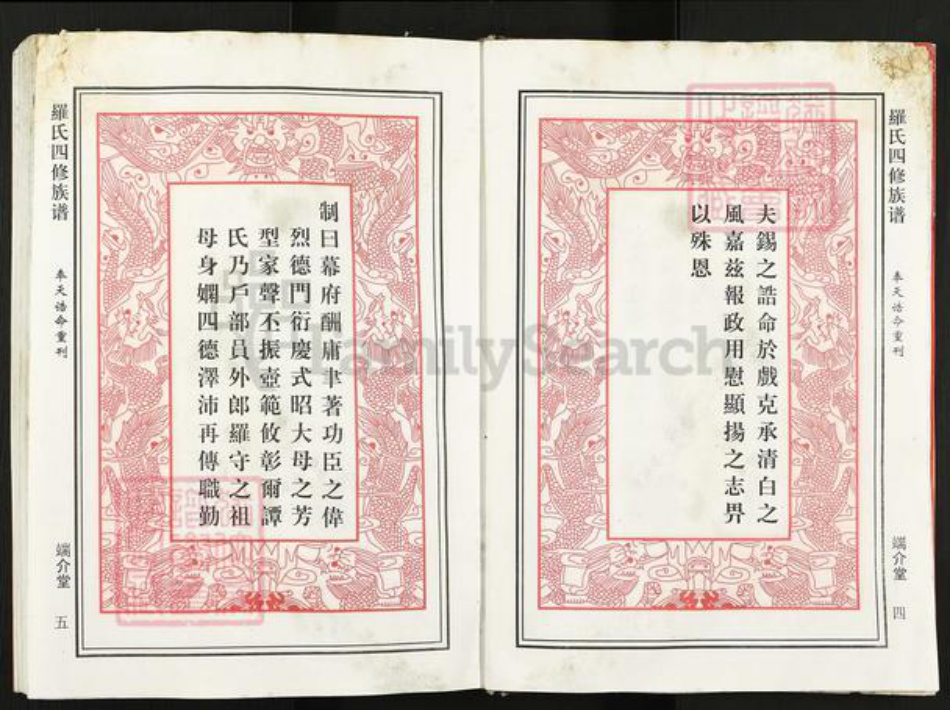 羅氏四修族谱
奉天诰命重刊
端介堂
四
夫錫之誥命於戲克承清白之
風嘉茲報政用慰顯揚之志畀
以殊恩
制曰幕府酬庸聿著功臣之偉
烈德門衍慶式昭大母之芳
型家聲丕振壺範攸彰爾譚
氏乃戶部員外郎羅守之祖
母身嫻四德澤沛再傳職勤
羅氏四修族谱
奉天诰命重刊
端介堂
五
FamilySearch